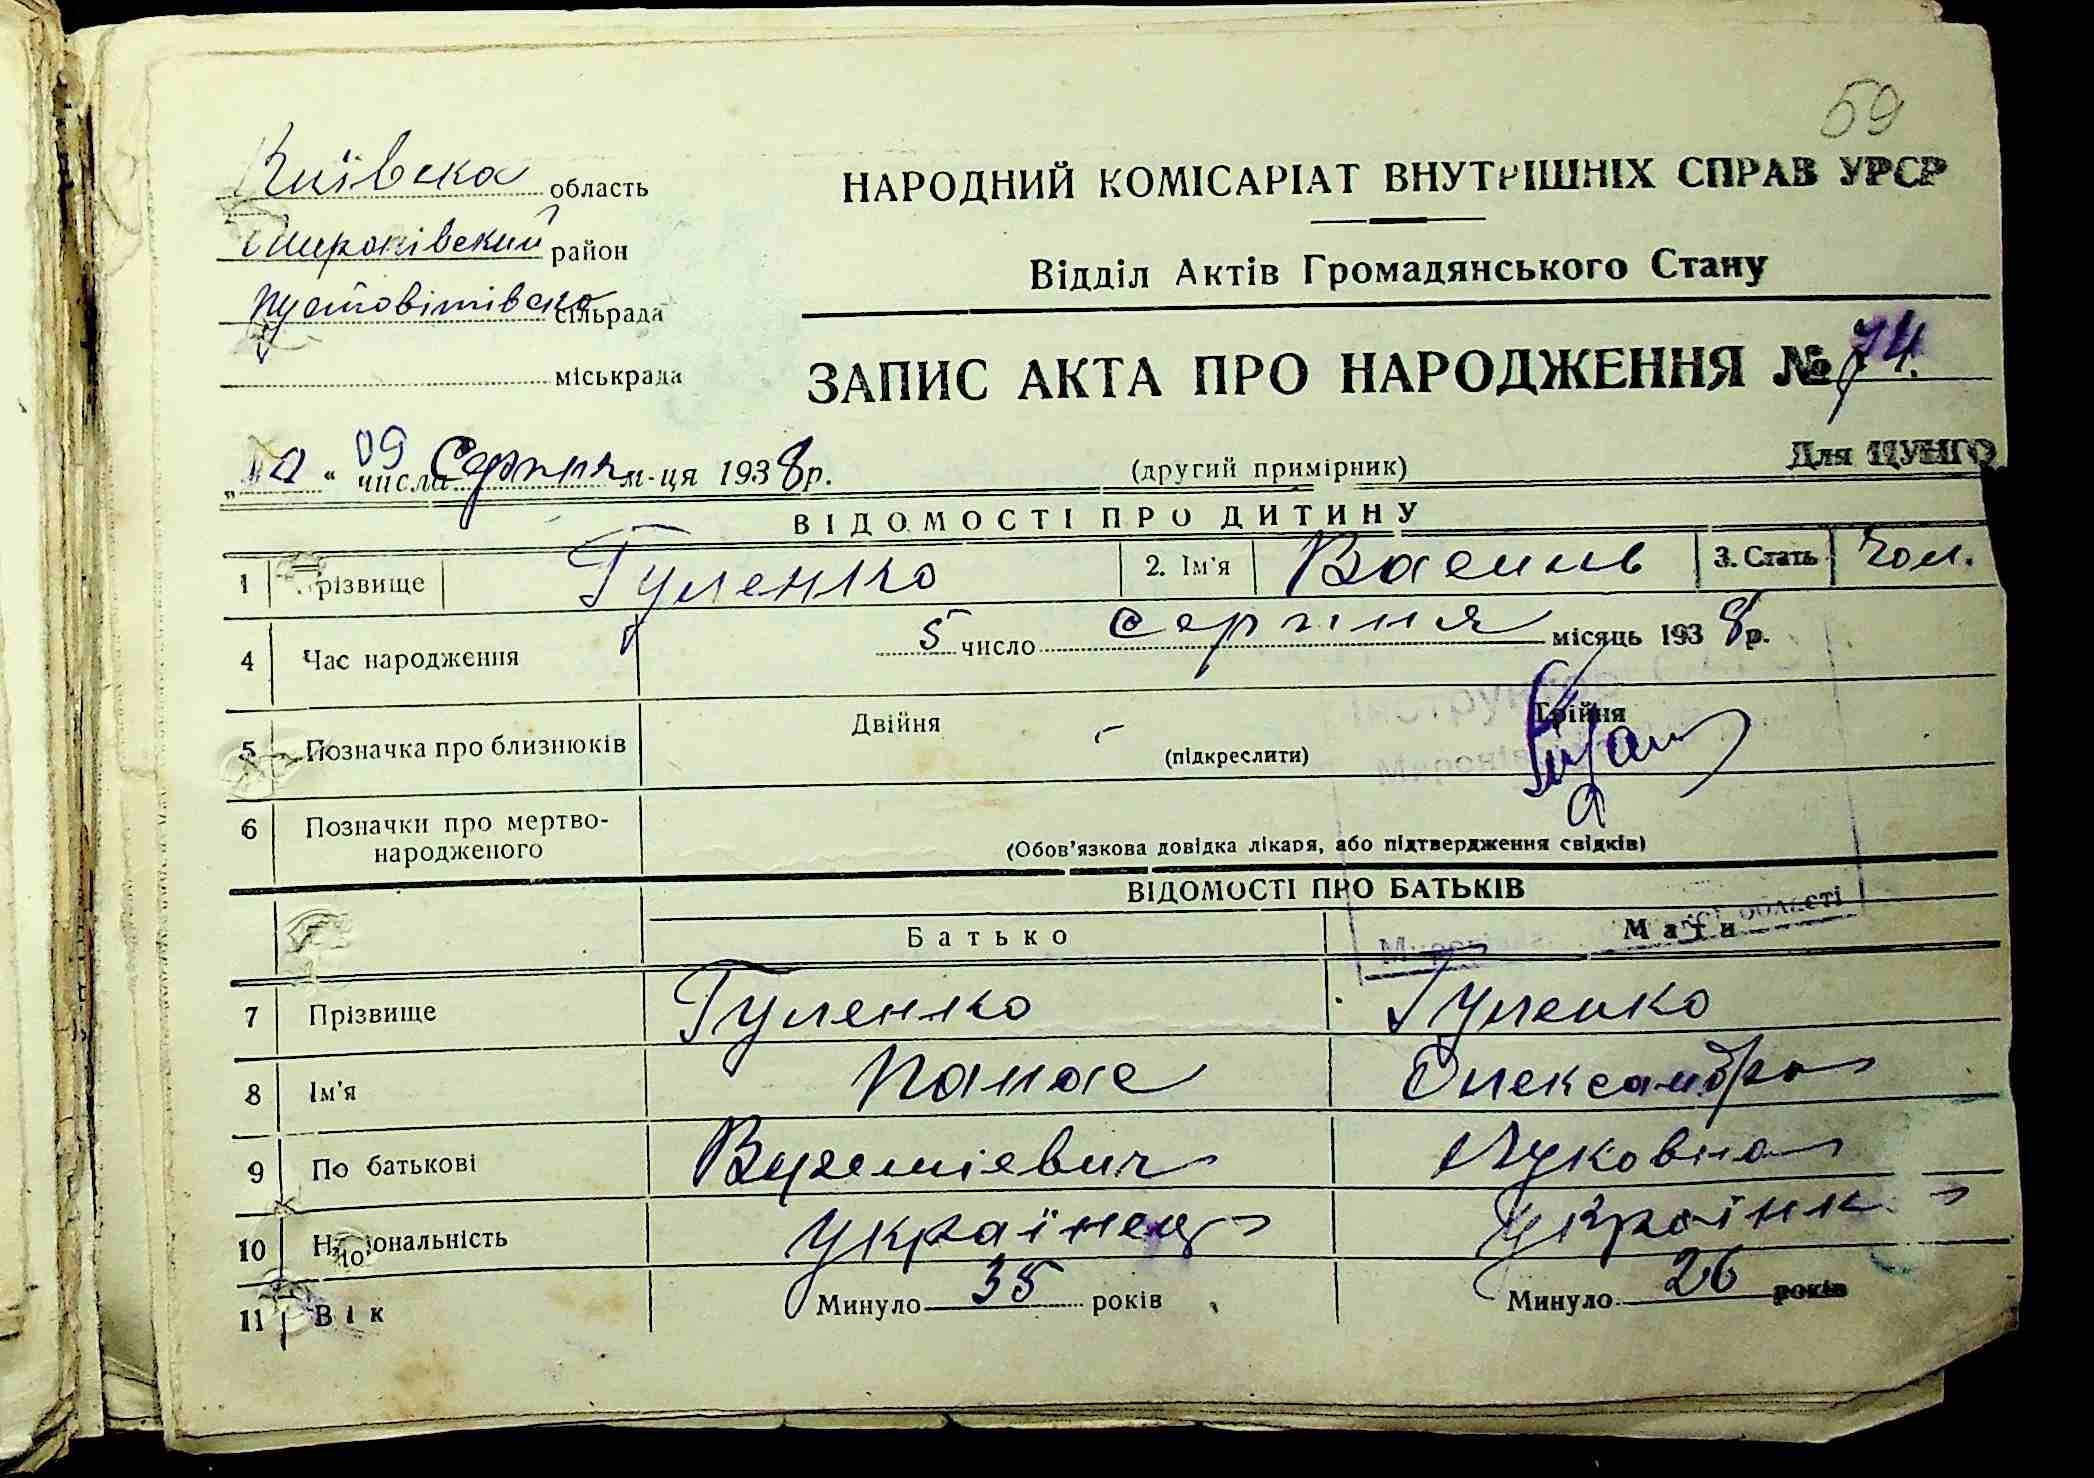 59
Київска область
Миронівский район
Пустовітівска сільрада
міськрада
НАРОДНИЙ КОМІСАРІАТ ВНУТРІШНІХ СПРАВ УРСР
Відділ Актів Громадянського Стану
ЗАПИС АКТА ПРО НАРОДЖЕННЯ № 74.
09
числа Серпня м-ця 1938 р.
(другий примірник)
Для ЦУНГО
ВІДОМОСТІ ПРО ДИТИНУ
1 Прізвище Гуленко 2. Ім'я Василь 3. Стать чол.
4 Час народження 5 число серпня місяць 1938 р.
5 Позначка про близнюків Двійня - Трійня
(підкреслити)
6 Позначки про мертво-
народженого
(Обов'язкова довідка лікаря, або підтвердження свідків)
ВІДОМОСТІ ПРО БАТЬКІВ
Батько Мати
7 Прізвище Гуленко Гуленко
8 Ім'я Панас Олександра
9 По батькові
10 Національність українец українк
11 Вік Минуло 35 років Минуло 26 років